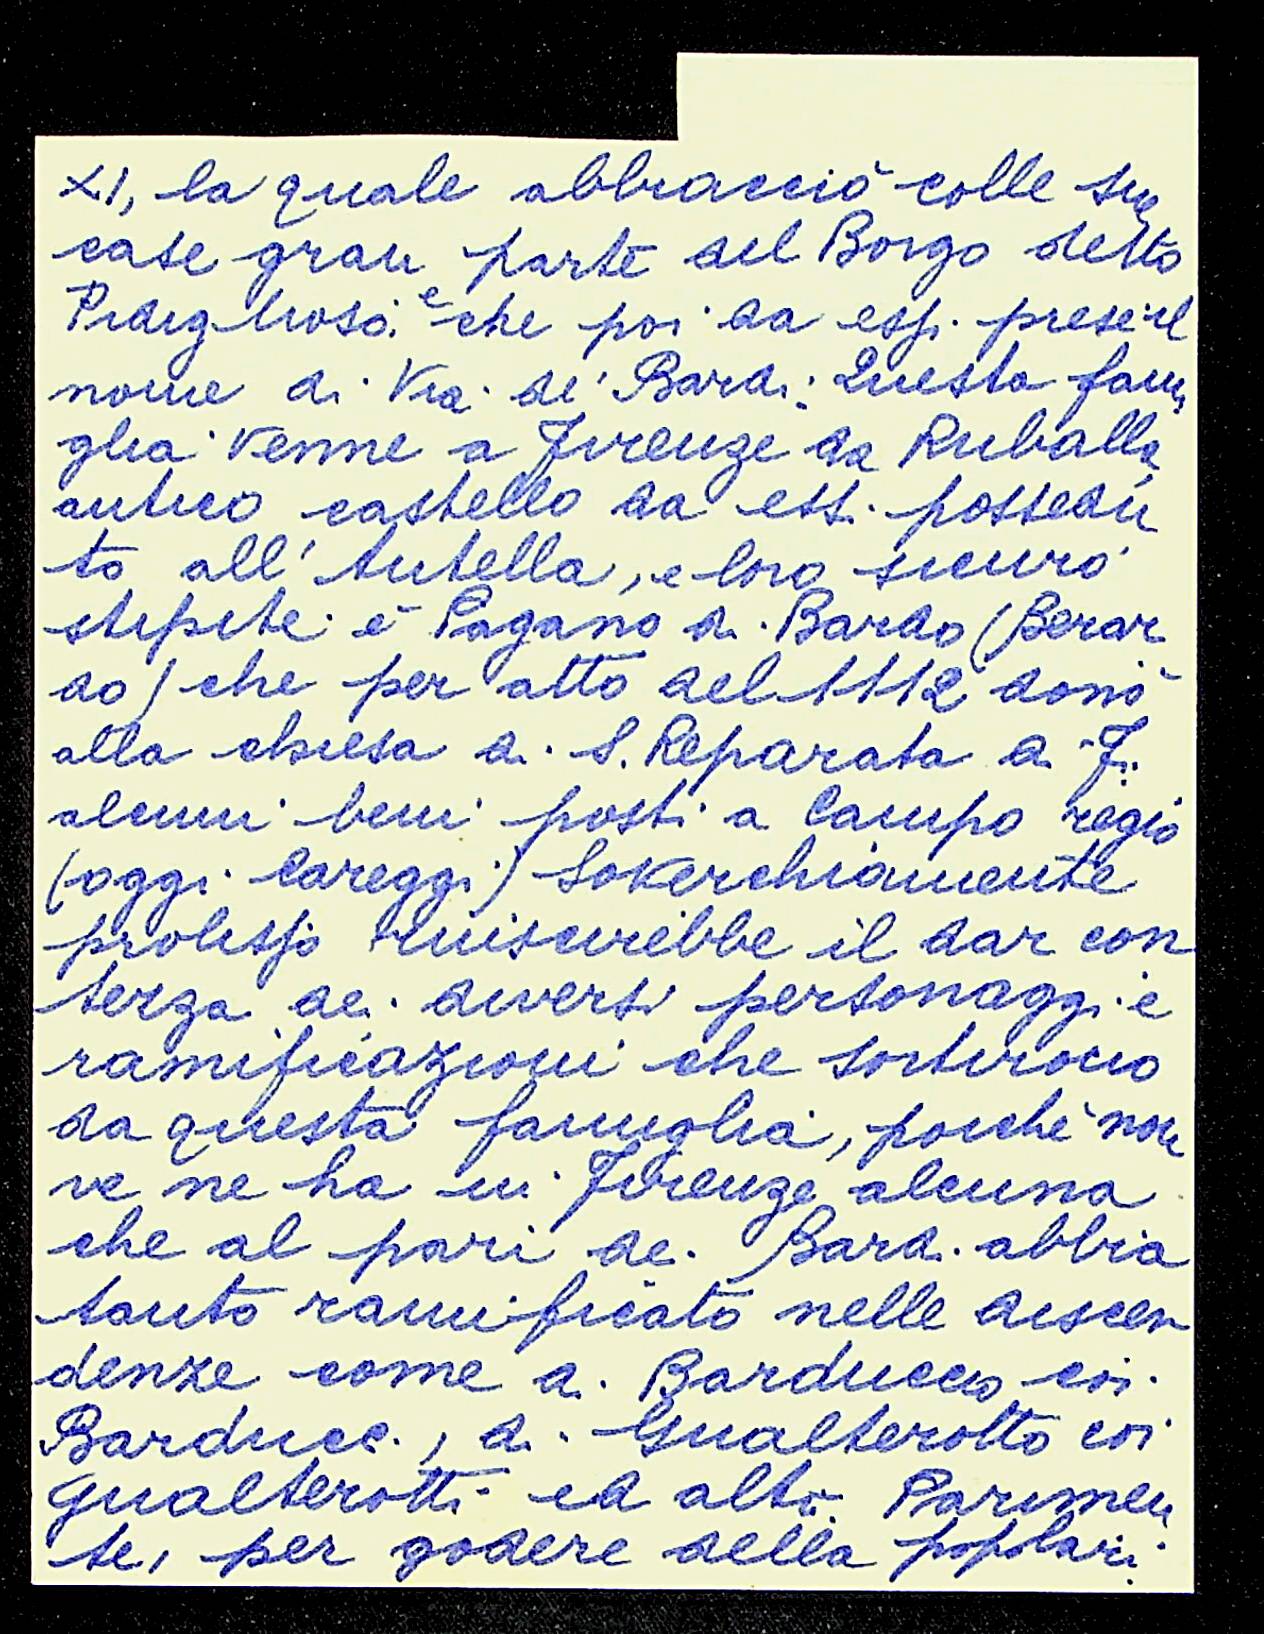 XI, la quale abbracciò colle sue
case gran parte del Borgo detto
Pidiglioso. e che poi da essi prese il
nome di Via de' Bardi. Questa fami
glia venne a Firenze da Ruballa
antico castello da essi possedu
to all'Antella, e loro sicuro
stipite è Pagano di Bardo (Berar
do) che per atto del 1112 donò
alla chiesa di S. Reparata di F.
alcuni beni posti a Campo regio
(oggi Careggi) Soverchiamente
prolisso riuscirebbe il dar con
tezza dei diversi personaggi e
ramificazioni che sortirono
da questa famiglia, poichè non
ve ne ha in Firenze alcuna
che al pari dei Bardi abbia
tanto ramificato nelle discen
denze come di Barduccio coi
Barducci, di Gualterotto coi
Gualterotti ed altri. Parimen
te, per godere della popolari